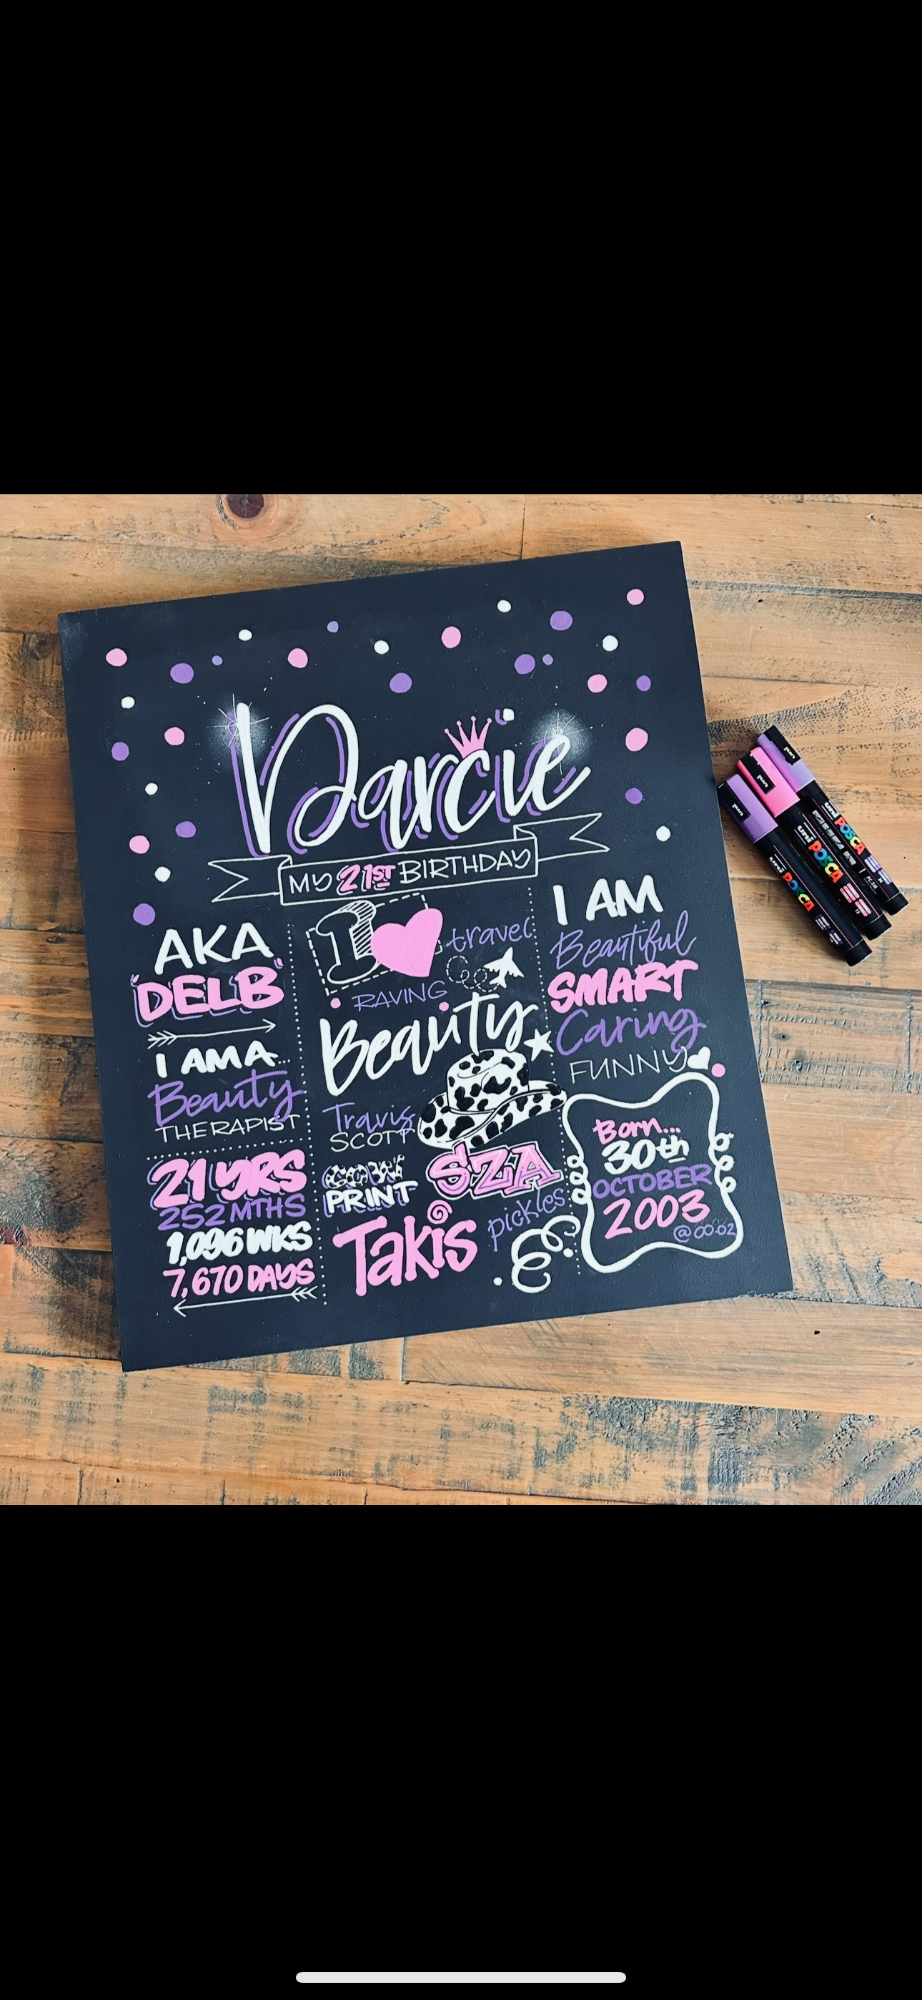 Darcie
MY 21ST BIRTHDAY
AKA
"DELB"
I AM A...
Beauty
THERAPIST
21 YRS
252 MTHS
1,096 WKS
7,670 DAYS
I
travel
RAVING
Beauty
Travis
SCOTT
COW
PRINT
SZA
Takis
pickles
I AM
Beautiful
SMART
Caring
FUNNY
Born...
30th
OCTOBER
2003
@ 00:02
POSCA
POSCA
POSCA